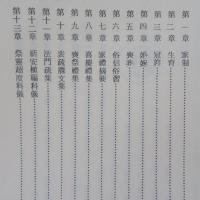 第一章 家制
第二章 生育
第三章 冠笄
第四章 婚姻
第五章 喪葬
第六章 俗信俗習
第七章 家禮摘要
第八章 喜慶禮集
第九章 喪祭禮集
第十章 表疏牒文集
第十一章 法門疏集
第十二章 祈安植福科儀
第十三章 祭靈超度科儀